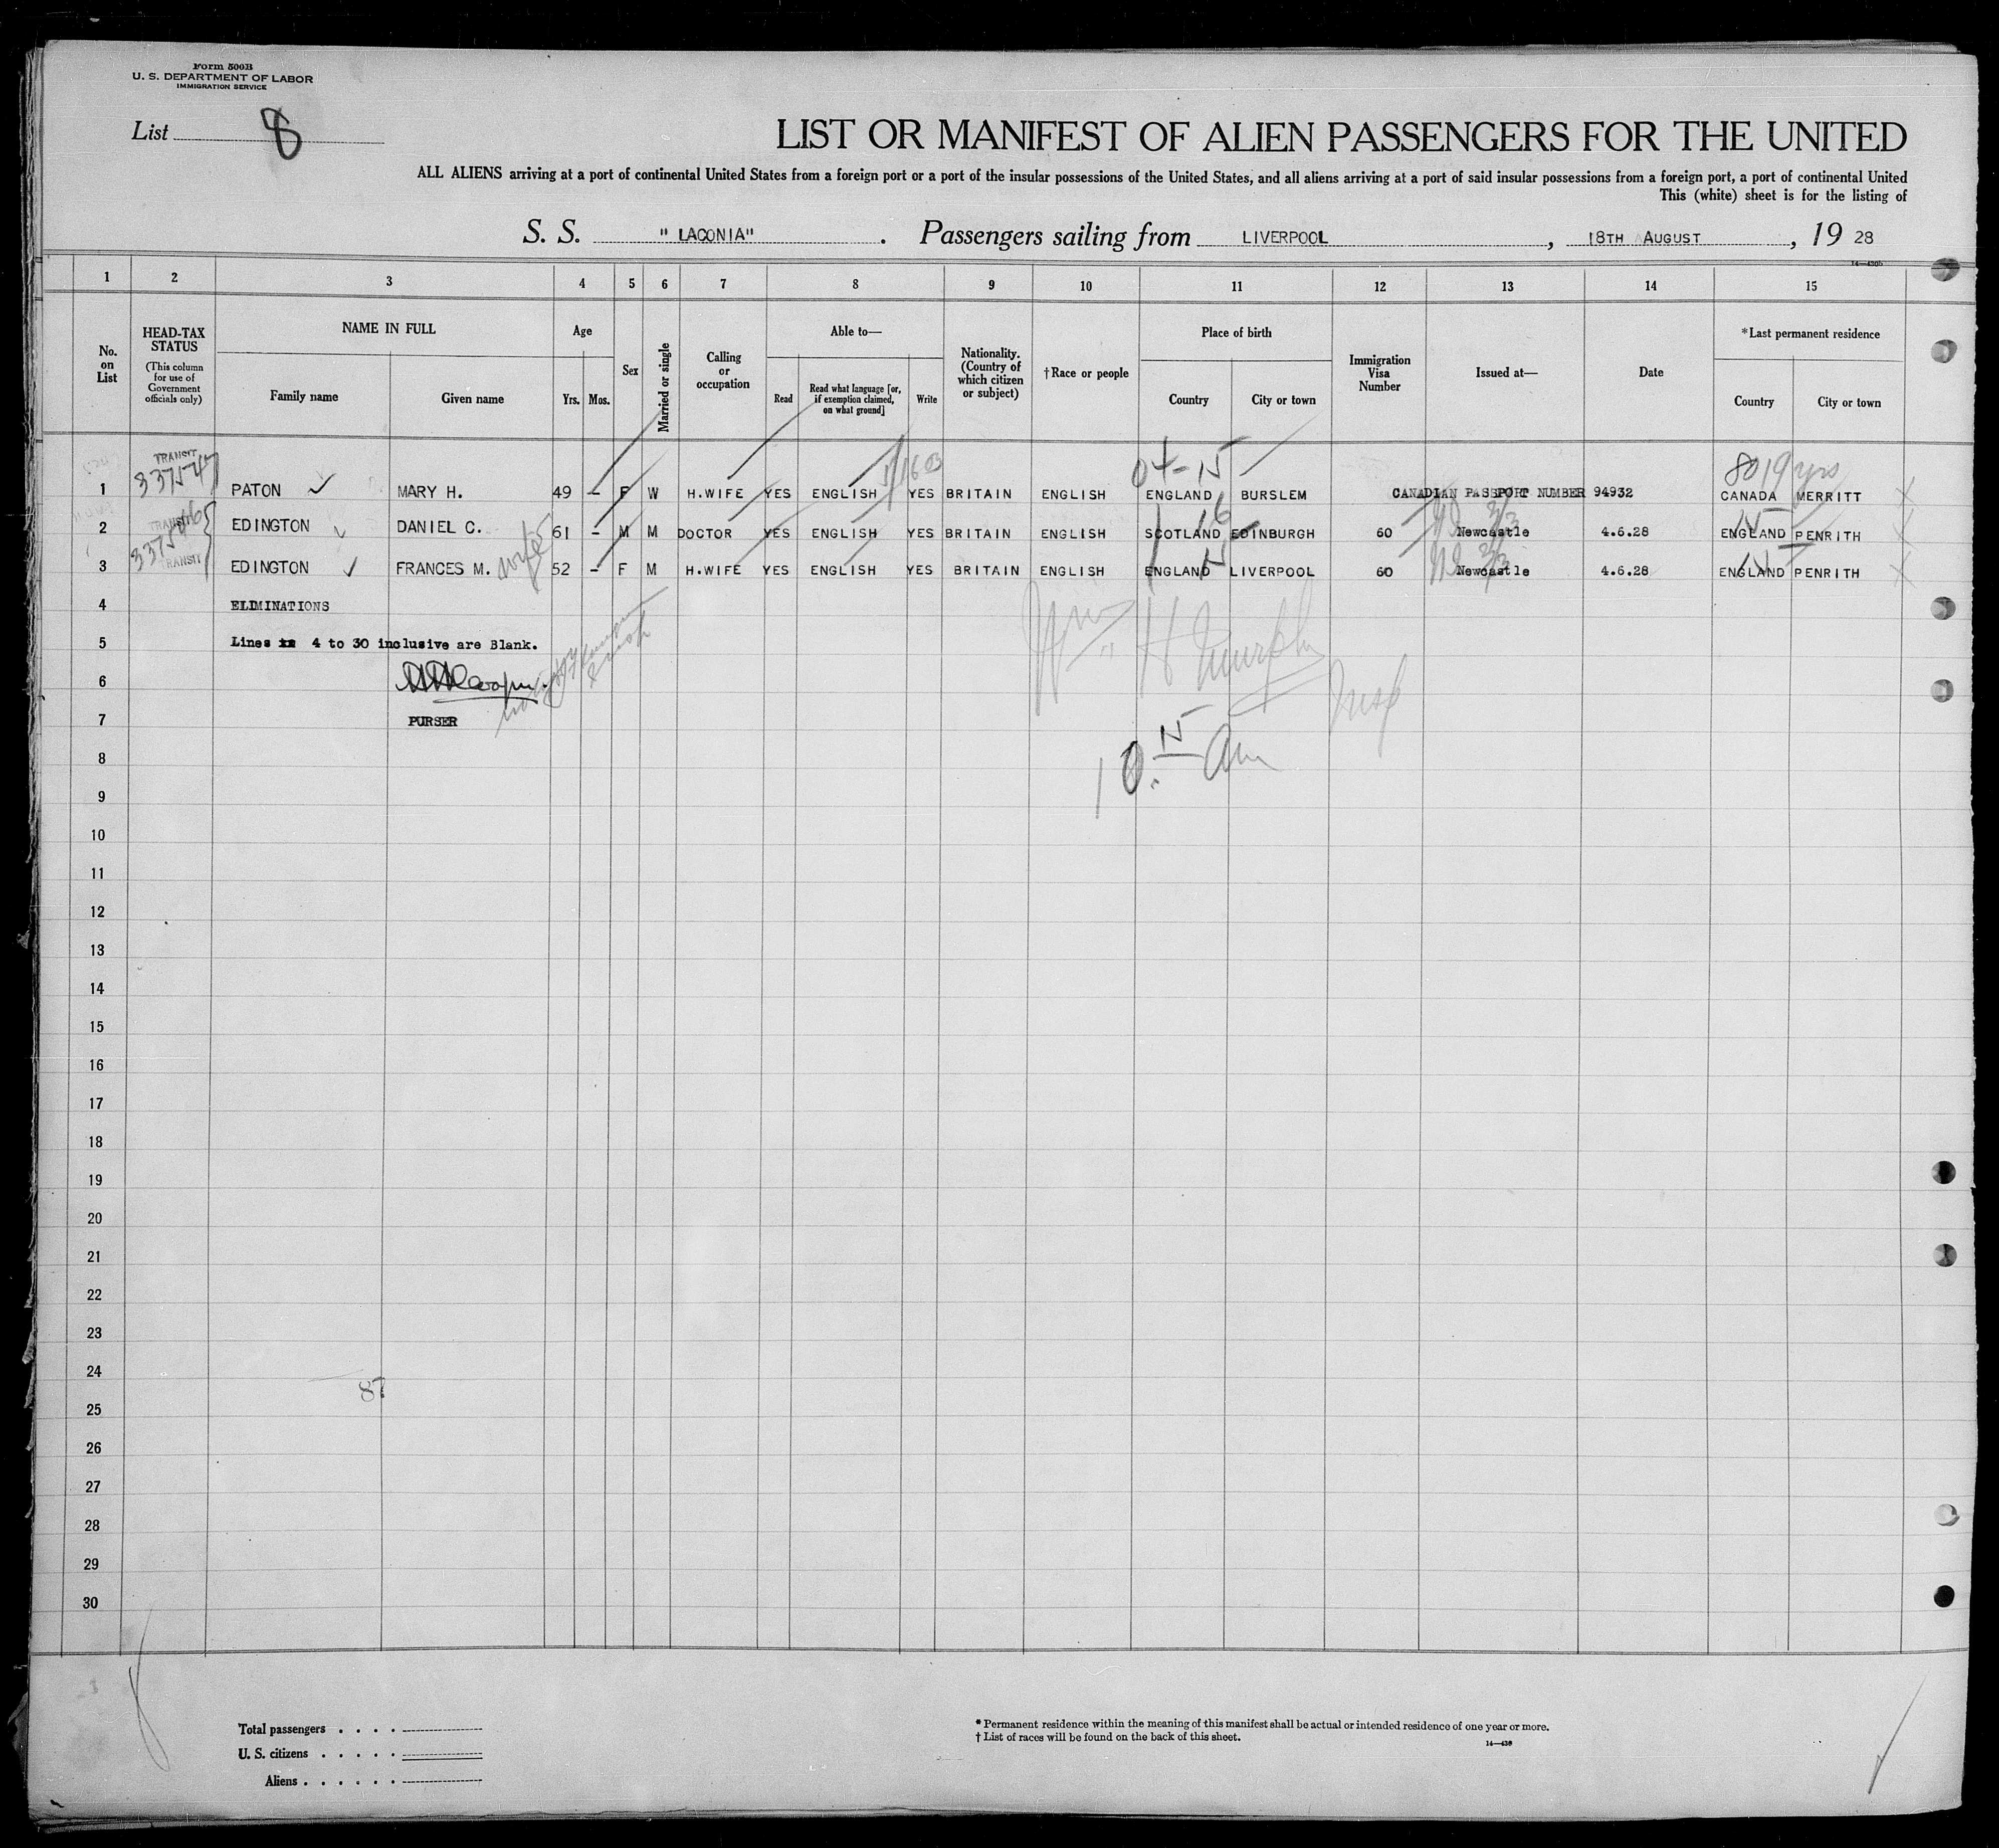 Form 500B
U. S. DEPARTMENT OF LABOR
IMMIGRATION SERVICE
List 8
LIST OR MANIFEST OF ALIEN PASSENGERS FOR THE UNITED
ALL ALIENS arriving at a port of continental United States from a foreign port or a port of the insular possessions of the United States, and all aliens arriving at a port of said insular possessions from a foreign port, a port of continental United
This (white) sheet is for the listing of
S. S. "LACONIA". Passengers sailing from LIVERPOOL, 18TH AUGUST, 19 28
1 2 3 4 5 6 7 8 9 10 11 12 13 14 15
No. on List
HEAD-TAX STATUS
(This column for use of Government officials only)
NAME IN FULL
Family name Given name
Age
Yrs. Mos.
Sex
Married or single
Calling or occupation
Able to—
Read
Read what language [or, if exemption claimed, on what ground]
Write
Nationality. (Country of which citizen or subject)
†Race or people
Place of birth
Country City or town
Immigration Visa Number
Issued at—
Date
*Last permanent residence
Country City or town
TRANSIT 337547 04-15
1 PATON MARY H. 49 – F W H.WIFE YES ENGLISH YES BRITAIN ENGLISH ENGLAND BURSLEM CANADIAN PASSPORT NUMBER 94932 CANADA MERRITT
TRANSIT 16
2 EDINGTON DANIEL C. 61 – M M DOCTOR YES ENGLISH YES BRITAIN ENGLISH SCOTLAND EDINBURGH 60 Newcastle 4.6.28 ENGLAND PENRITH
TRANSIT 15
3 EDINGTON FRANCES M. wife 52 – F M H.WIFE YES ENGLISH YES BRITAIN ENGLISH ENGLAND LIVERPOOL 60 Newcastle 4.6.28 ENGLAND PENRITH
4 ELIMINATIONS
5 Lines 4 to 30 inclusive are Blank.
6
Wm H Murphy Insp
7 PURSER
10.15 am
8
9
10
11
12
13
14
15
16
17
18
19
20
21
22
23
24
87
25
26
27
28
29
30
Total passengers
U. S. citizens
Aliens
* Permanent residence within the meaning of this manifest shall be actual or intended residence of one year or more.
† List of races will be found on the back of this sheet.
14—430